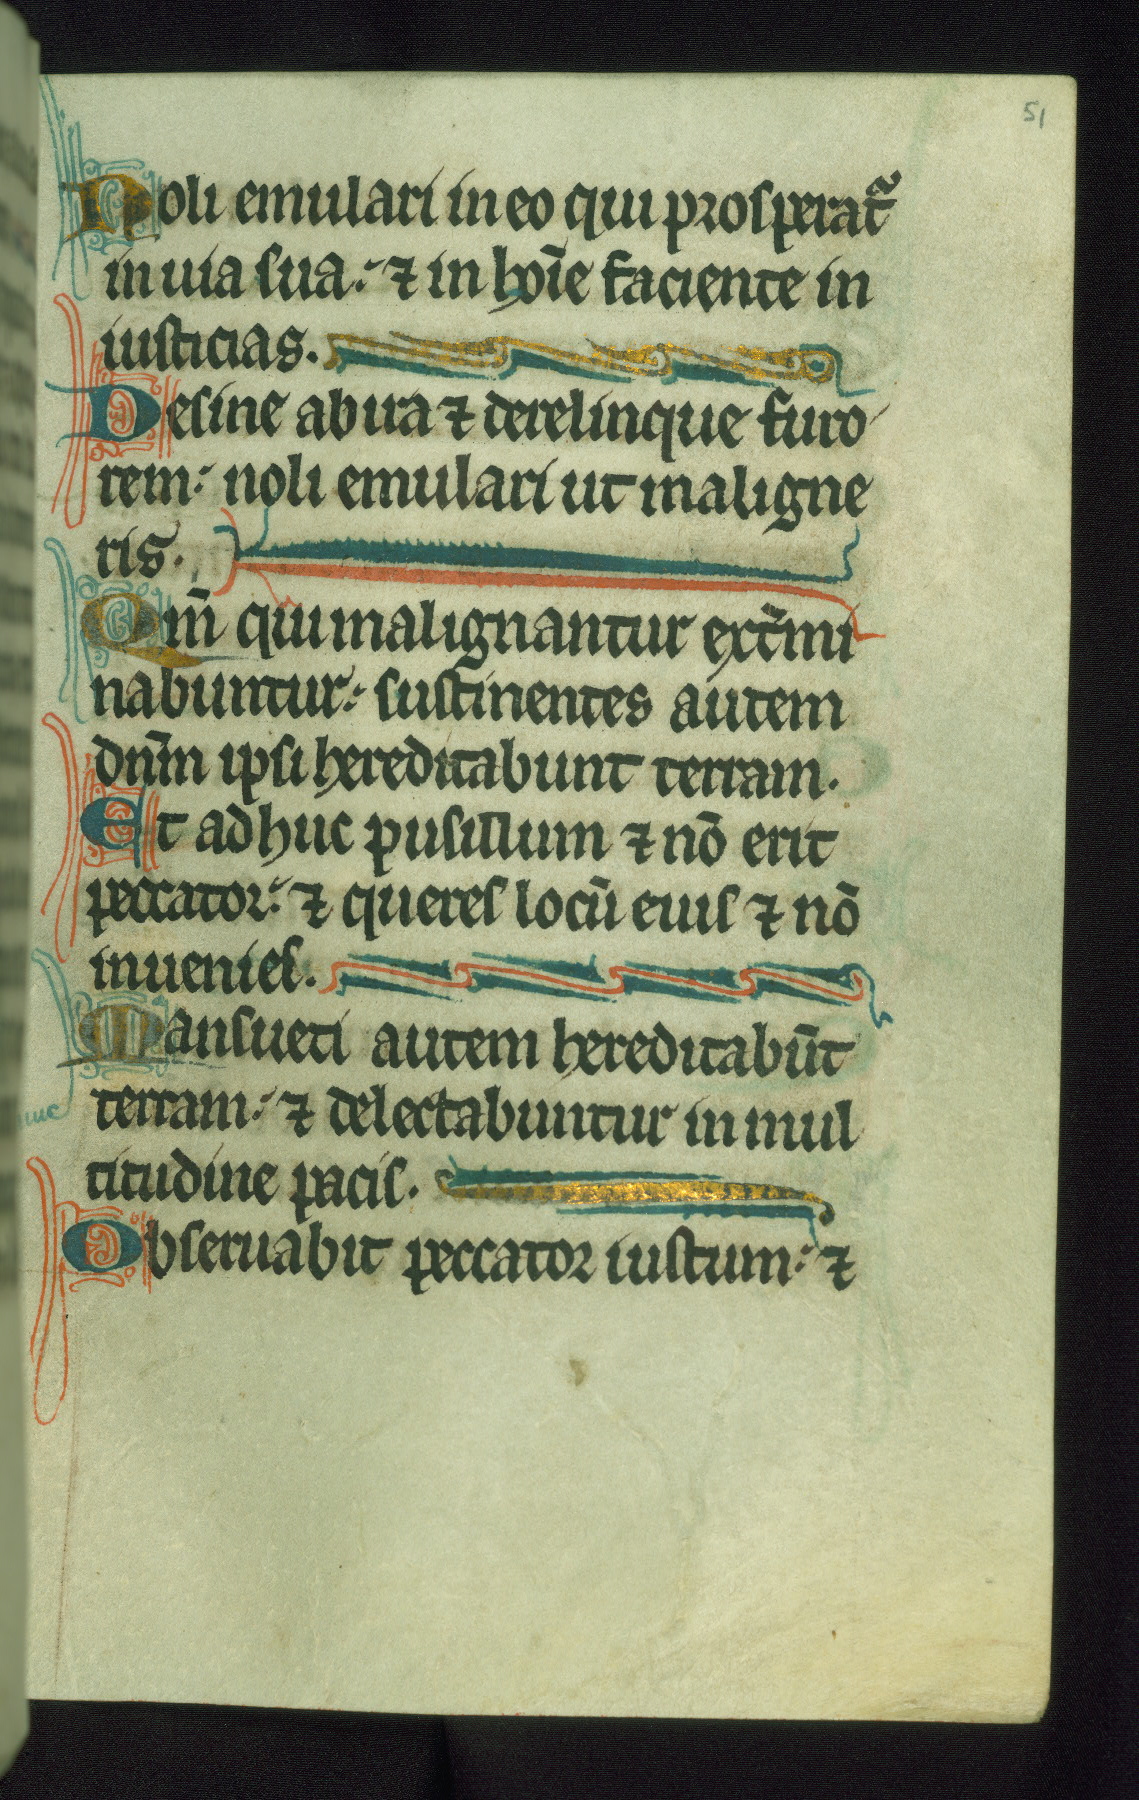 51
Noli emulari in eo qui prosperat᷑
in uia sua: ⁊ in ho̅ie faciente in
iusticias.
Desine ab ira ⁊ derelinque furo
rem: noli emulari ut maligne
ris.
Qm̅ qui malignantur ext̅mi
nabuntur: sustinentes autem
dn̅m ipsi hereditabunt terram.
Et adhuc pusillum ⁊ no̅ erit
peccator: ⁊ queres locu̅ eius ⁊ no̅
inuenies.
Mansueti autem hereditabu̅t
terram: ⁊ delectabuntur in mul
titudine pacis.
Obseruabit peccator iustum: ⁊